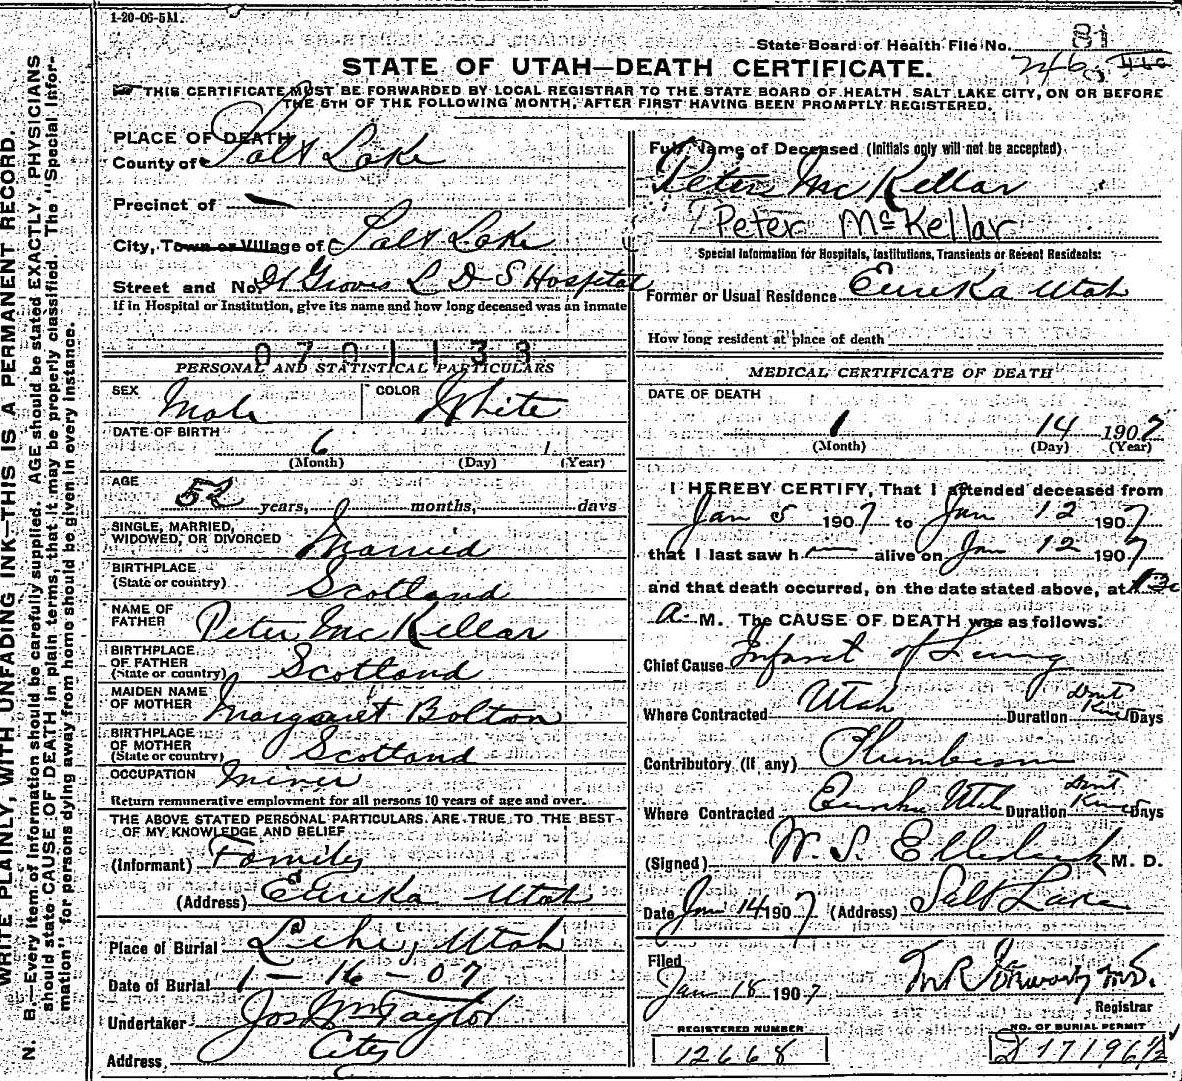 1-20-06-5M.
State Board of Health File No. 81
246
STATE OF UTAH—DEATH CERTIFICATE.
THIS CERTIFICATE MUST BE FORWARDED BY LOCAL REGISTRAR TO THE STATE BOARD OF HEALTH, SALT LAKE CITY, ON OR BEFORE
THE 5TH OF THE FOLLOWING MONTH, AFTER FIRST HAVING BEEN PROMPTLY REGISTERED.
WRITE PLAINLY, WITH UNFADING INK—THIS IS A PERMANENT RECORD.
N. B.—Every item of information should be carefully supplied. AGE should be stated EXACTLY. PHYSICIANS
should state CAUSE OF DEATH in plain terms, that it may be properly classified. The "Special Infor-
mation" for persons dying away from home should be given in every instance.
PLACE OF DEATH
County of Salt Lake
Precinct of —
City, Town or Village of Salt Lake
Street and No. W Groves L D S Hospital
If in Hospital or Institution, give its name and how long deceased was an inmate
0701133
PERSONAL AND STATISTICAL PARTICULARS
SEX Male COLOR White
DATE OF BIRTH
6 1
(Month) (Day) (Year)
AGE
52 years, months, days
SINGLE, MARRIED,
WIDOWED, OR DIVORCED Married
BIRTHPLACE
(State or country) Scotland
NAME OF
FATHER Peter McKellar
BIRTHPLACE
OF FATHER
(State or country) Scotland
MAIDEN NAME
OF MOTHER Margaret Bolton
BIRTHPLACE
OF MOTHER
(State or country) Scotland
OCCUPATION Miner
Return remunerative employment for all persons 10 years of age and over.
THE ABOVE STATED PERSONAL PARTICULARS ARE TRUE TO THE BEST
OF MY KNOWLEDGE AND BELIEF
(Informant) Family
(Address) Eureka Utah
Place of Burial Lehi, Utah
Date of Burial 1-16-07
Undertaker Jos Wm Taylor
Address City
Full Name of Deceased (Initials only will not be accepted)
Peter McKellar
Peter McKellar
Special Information for Hospitals, Institutions, Transients or Recent Residents:
Former or Usual Residence Eureka Utah
How long resident at place of death
MEDICAL CERTIFICATE OF DEATH
DATE OF DEATH
1 14 1907
(Month) (Day) (Year)
I HEREBY CERTIFY, That I attended deceased from
Jan 5 1907 to Jan 12 1907
that I last saw h— alive on Jan 12 1907
and that death occurred, on the date stated above, at
A. M. The CAUSE OF DEATH was as follows:
Chief Cause Infarct of Lung
Where Contracted Utah Duration Dont Know Days
Contributory (if any) Plumbism
Where Contracted Eureka Utah Duration Dont Know Days
(Signed) W. S. M. D.
Date Jan 14 1907 (Address) Salt Lake
Filed
Jan 18 1907
Registrar
REGISTERED NUMBER
12668
NO. OF BURIAL PERMIT